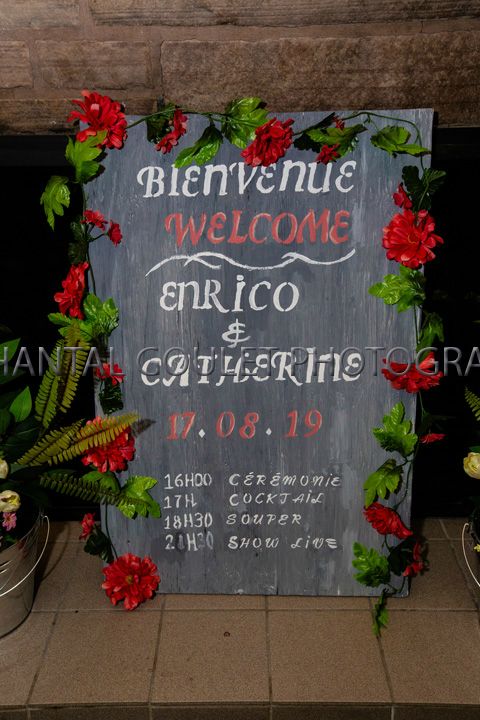 BIENVENUE
WELCOME
ENRICO
&
CATHERINE
17.08.19
16H00 CÉRÉMONIE
17H COCKTAIL
18H30 SOUPER
20H30 SHOW LIVE
CHANTAL GOULET PHOTOGRA